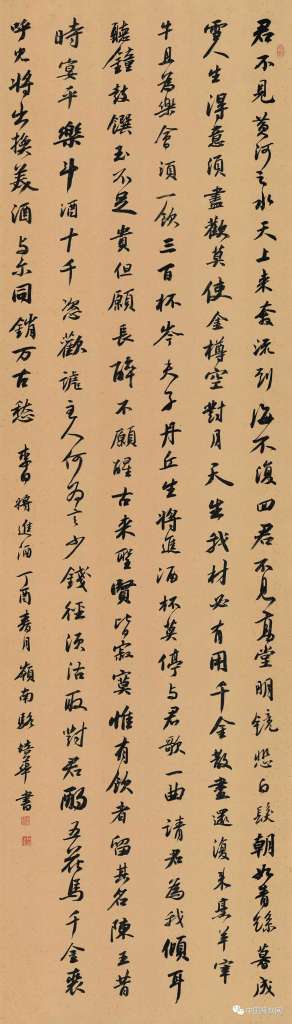 君不見黄河之水天上来奔流到海不復回君不見高堂明鏡悲白髮朝如青絲暮成
雪人生得意須盡歡莫使金樽空對月天生我材必有用千金散盡還復来烹羊宰
牛且為樂會須一飲三百杯岑夫子丹丘生将進酒杯莫停与君歌一曲請君為我傾耳
聽鐘鼓饌玉不足貴但願長醉不願醒古来聖賢皆寂寞惟有飲者留其名陳王昔
時宴平樂斗酒十千恣歡謔主人何為言少錢徑須沽取對君酌五花馬千金裘
呼兒将出換美酒与尔同銷万古愁 李白将進酒 丁酉春月嶺南駱培華書